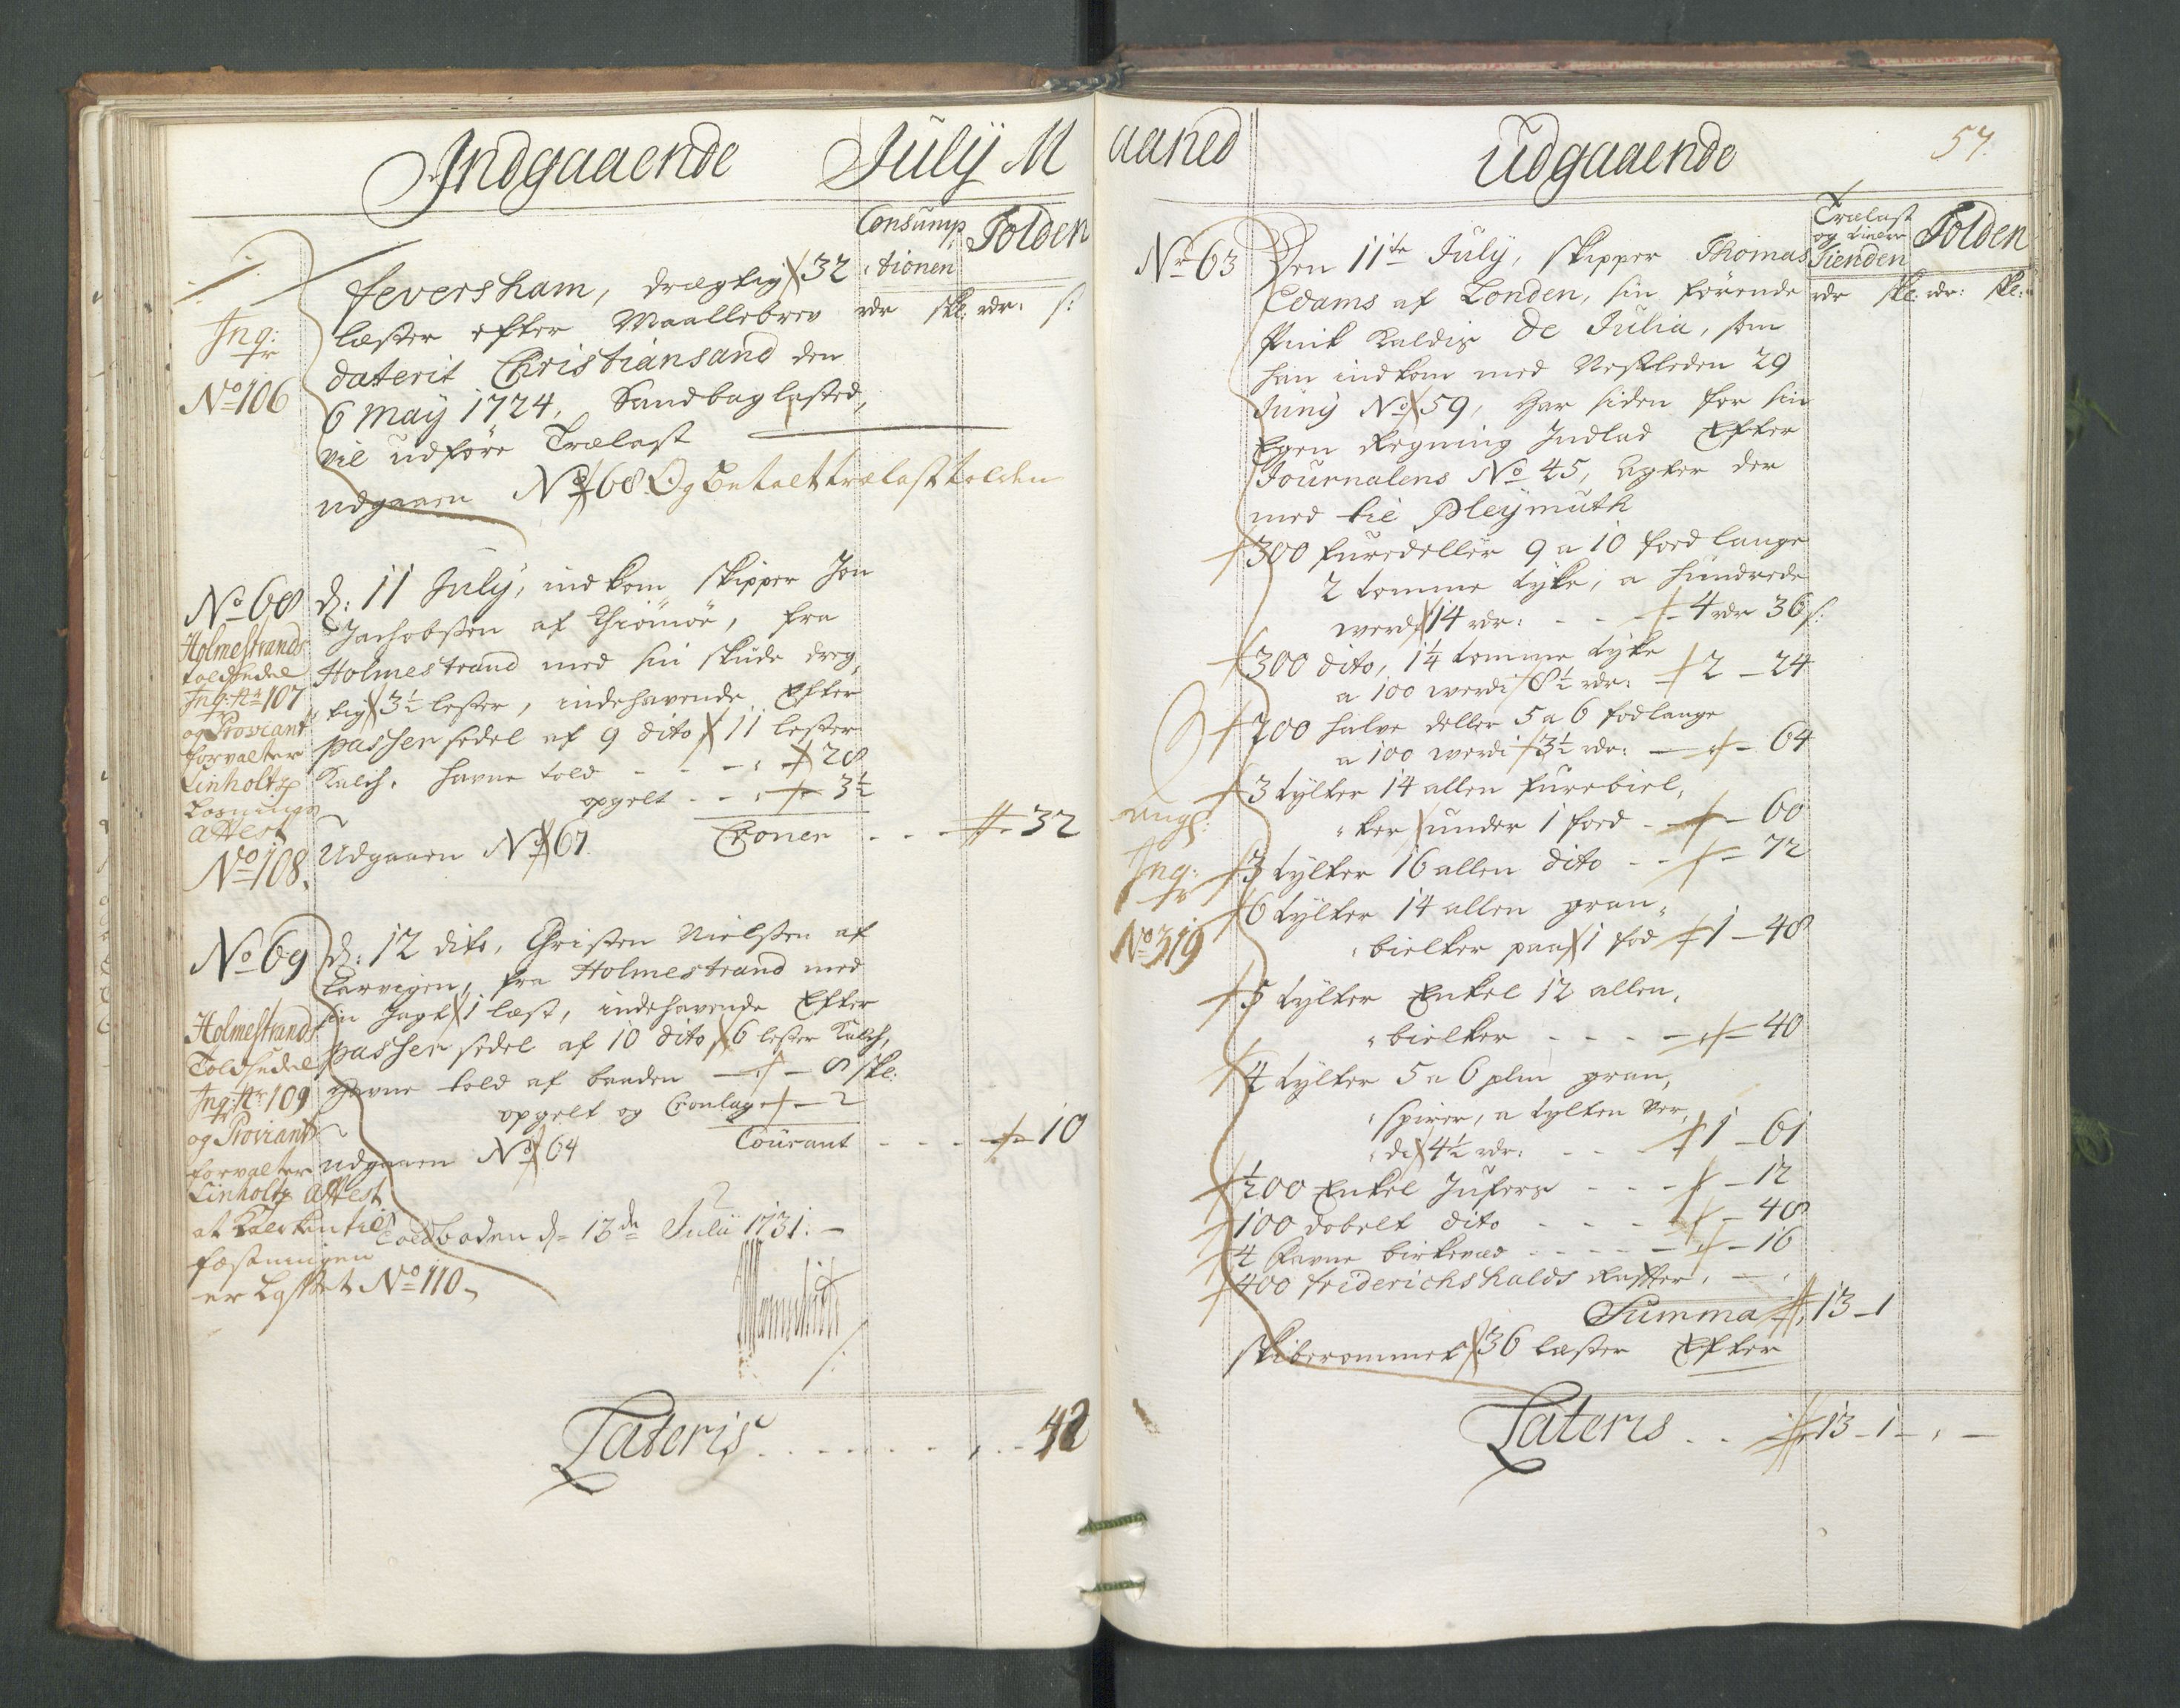 Indgaaende July M
Consump
tionen
Tolden
rdr skl: rdr: s:
feversham, drægtig 32
læster efter Maallebrev
daterit Christiansand den
6 Maÿ 1724, Sandbaglasted,
vil udføre Trælast
udgaaen No 68 Og Betalt trælast tolden
Inq:
No 106
No 68
Holmestrands
toldsedel
Inq: No 107
og Proviant
forvalter
Linholtz
Losnings
attest
No 108.
d: 11 July, ind kom skipper Jon
Jachobsen af Thiömöe, fra
Holmestrand med sin skude dreg,
tig 3½ lester, indehavende Efter
passer sedel af 9 dito 11 lester
Kalch. havne told - - - 28
opgelt - - - 3½
Croner - - - 32
Udgaaen No 67
No 69
Holmestrands
Toldsedel
Inq: No 109
og Proviant
forvalter
Linholtz Attest
at Kalcken til
fæstningen
er Losset No 110
d: 12 dito, Christen Nielsen af
Larvigen, fra Holmestrand med
sin Jagt 1 læst, indehavende Efter
passer sedel af 10 dito 6 lester Kalch,
Havne told af baaden - 8 skl:
opgelt og Cronlage - 2
Courant - - - 10
udgaaen No 64
Toldboden d= 13de Julii 1731. -
Lateris . . . . . . . 42
aaned Udgaaende 57.
Trælast
og
Tienden
Tolden
rdr skl: rdr: skl:
No 63
Den 11te July, skipper Thomas
Edams af Londen, sin førende
Pink Kaldis De Julia, som
han indkom med Nestleden 29
Juny No 59, har siden for sin
Egen Regning Indlad Efter
Journalens No 45, agter der
med til Pleymuth
300 furedeller 9 a 10 foed lange
2 tomme tyke, a hundrede
werdi 14 rdr: - - - 4 rdr 36 s:
300 dito, 1¼ tomme tyke
a 100 werdi 8½ rdr: 2 - 24
700 halve deller 5 a 6 fod lange
a 100 werdi 3½ rdr: - - 64
3 tylter 14 allen furebiel,
ker under 1 foed - - 60
3 tylter 16 allen dito - - 72
6 tylter 14 allen gran,
bielker paa 1 fod 1 - 48
5 tylter Enkel 12 allen,
bielker - - - - 40
4 tylter 5 a 6 plm gran,
spirer, a tylten Ver,
di 4½ rdr: - - 1 - 61
½00 Enkel Juferr - - - 12
100 dobelt dito - - - 48
4 favne birkeved - - - - 16
400 friderichshalds Rafter. -
Summa 13 - 1
skiberommet 36 læster Efter
Inq:
No 319
Lateris . . 13 - 1 - , -